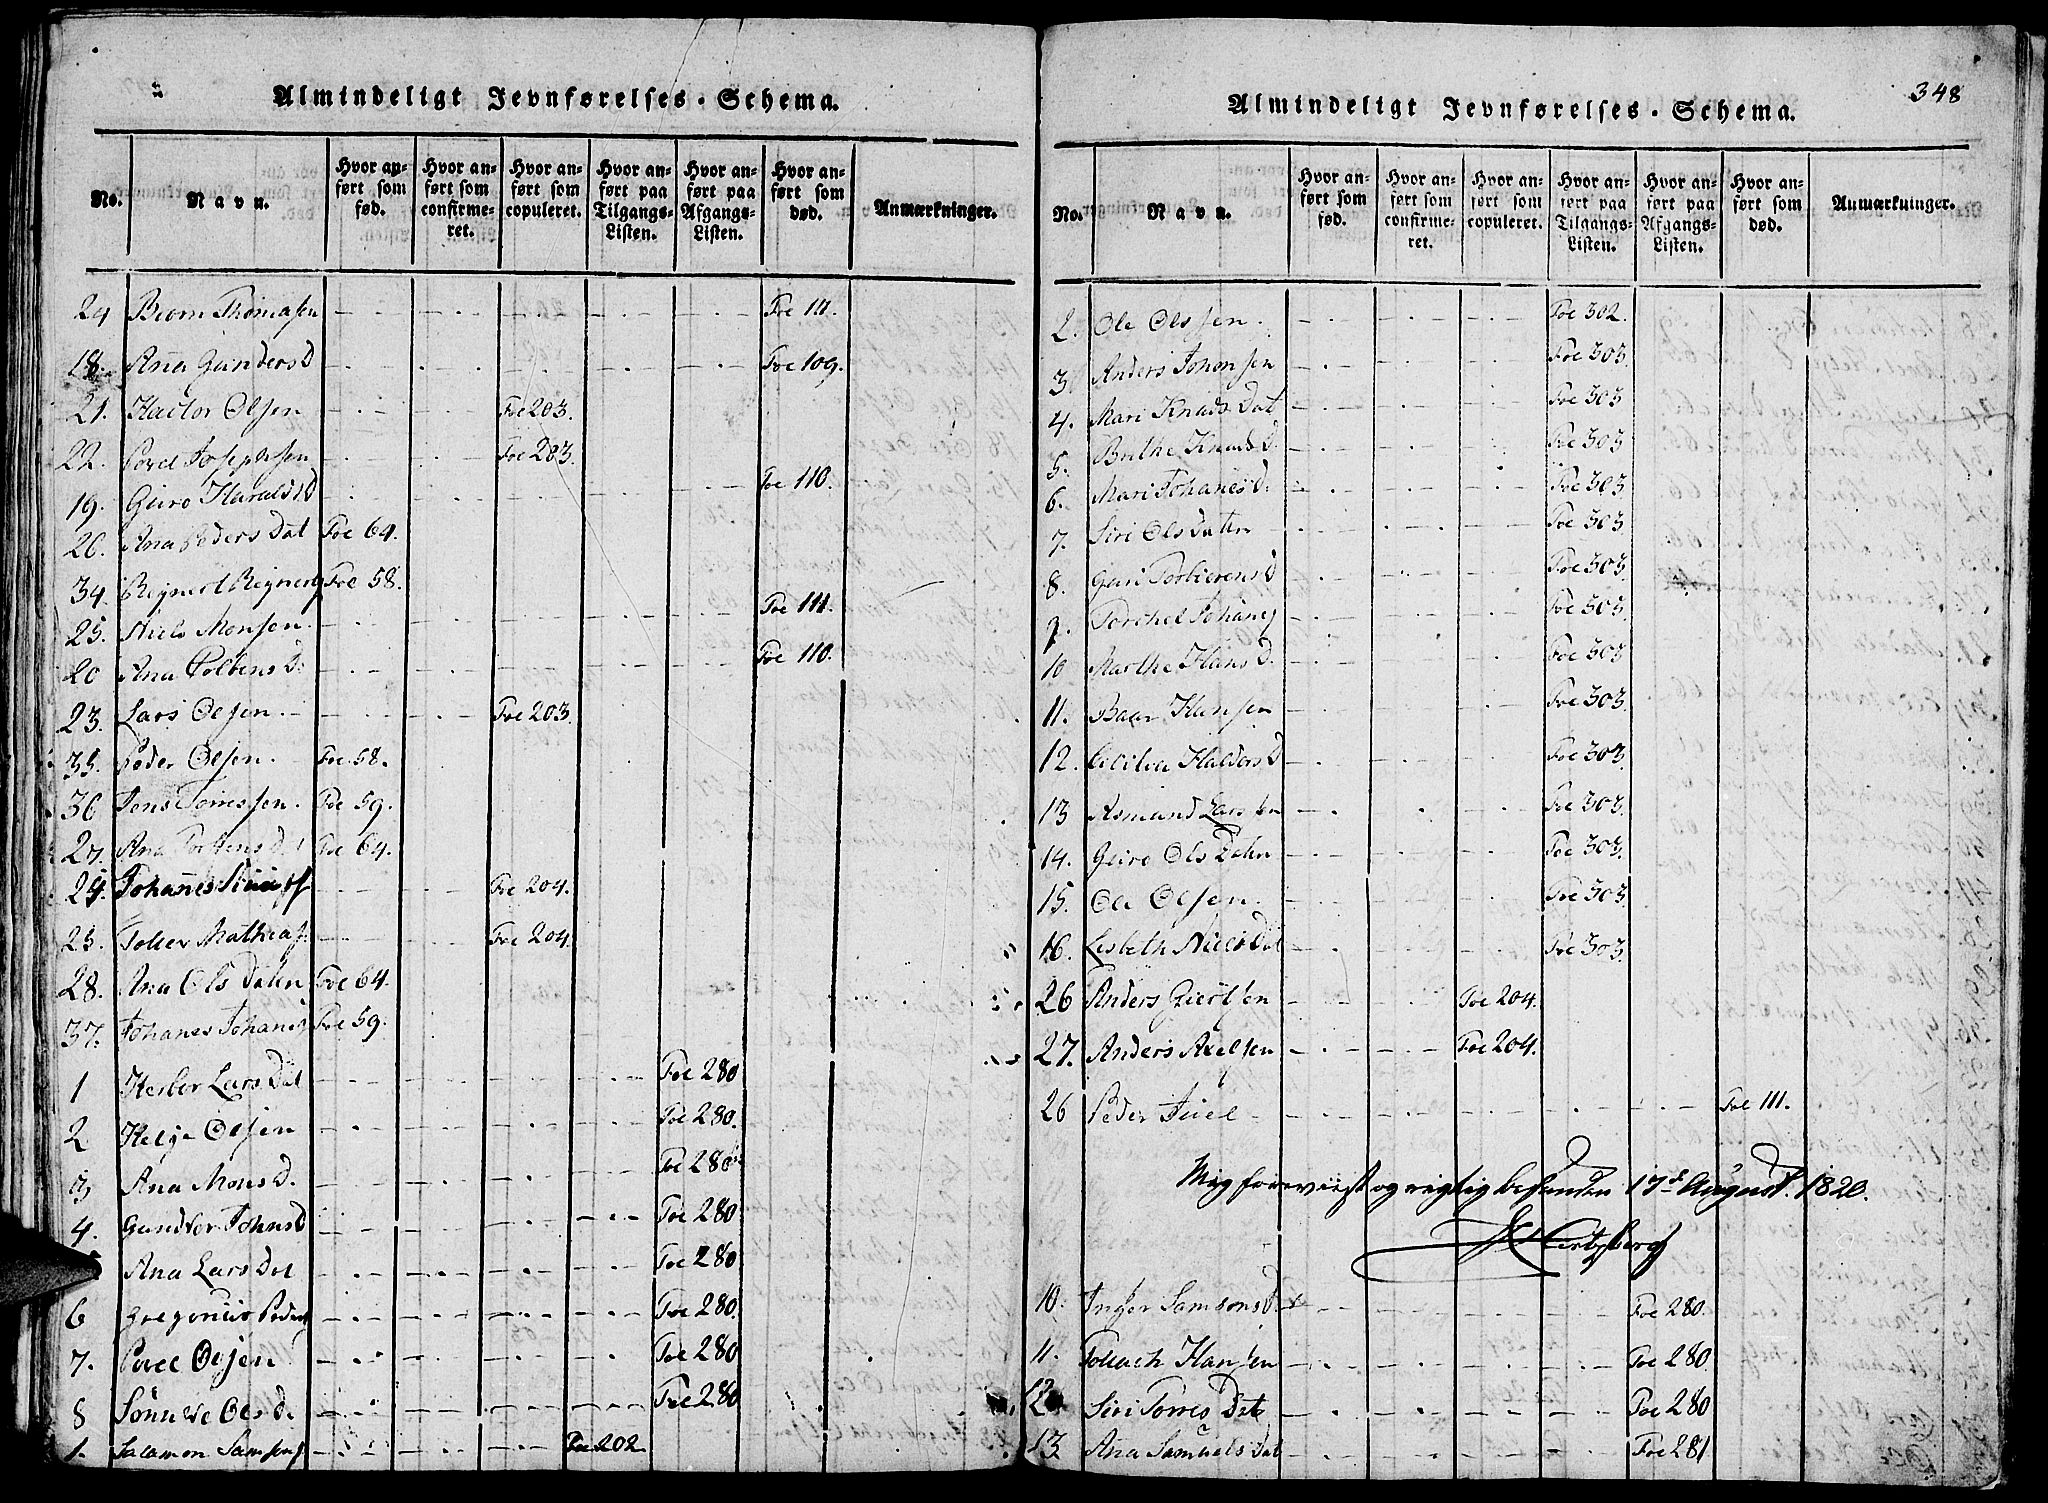 Almindeligt Jevnførelses-Schema.
No. Navn. Hvor anført som fød. Hvor anført som confirmeret. Hvor anført som copuleret. Hvor anført paa Tilgangs-Listen. Hvor anført paa Afgangs-Listen. Hvor anført som død. Anmærkninger.
24 Biorn Thomasen Foe 111.
18. Ana Gunders D Foe 109.
21. Hactor Olsen Foe 203.
22. Povel Josephsen Foe 203.
19. Guro Haralds D Foe 110.
26. Ana Peders Dat Foe 64.
34. Reynert Reynert Foe 58.
25. Niels Monsen. Foe 111.
20 Ana D. Foe 110.
23. Lars Olsen. Foe 203.
35. Peder Olsen. Foe 58.
36 Jens Torressen. Foe 59.
27. Ana Torstens D. Foe 64.
24. Johannes Foe 204.
25. Tolier Mathias Foe 204.
28. Ana Ols Datn Foe 64.
37. Johanes Johanes Foe 59.
1 Herbor Lars Dat Foe 280
2 Helge Olsen Foe 280.
3 Ana Mons D. Foe 280
4. Gundvor Johns D Foe 280
Ana Lars Dat Foe 280
6 Gregorius Peders Foe 280.
7. Povel Olsen Foe 280
8 Sønneve Ols D. Foe 280
1. Salamon Samsons Foe 202
348
Almindeligt Jevnførelses-Schema.
No. Navn. Hvor anført som fød. Hvor anført som confirmeret. Hvor anført som copuleret. Hvor anført paa Tilgangs-Listen. Hvor anført paa Afgangs-Listen. Hvor anført som død. Anmærkninger.
2. Ole Olssen. Foe 302.
3. Anders Johnsen Foe 303.
4. Mari Knuds Dat Foe 303
5. Brithe Knuds D. Foe 303
6. Mari Johanes D. Foe 303
7. Siri Ols Datter Foe 303
8. Guri Torbiørens D Foe 303
9. Torchel Johanes Foe 303.
10 Marthe Hans D. Foe 303
11. Baar Hansen Foe 303.
12. Cicilia Haldors D Foe 303
13 Asmund Larssen Foe 303.
14. Guro Ols Datn Foe 303.
15. Ole Olsen. Foe 303
16. Lisbeth Niels Dat Foe 303.
26 Anders Giertsen Foe 204.
27. Anders Axelsen Foe 204.
26 Peder Juel Foe 111.
Mig foreviist og rigtig befunden 17de August. 1820.
Hertzberg
10. Inger Samsons D. Foe 280.
11. Tollach Hansen Foe 280
12 Siri Torres Datr Foe 280
13 Ana Samuels Dat Foe 281